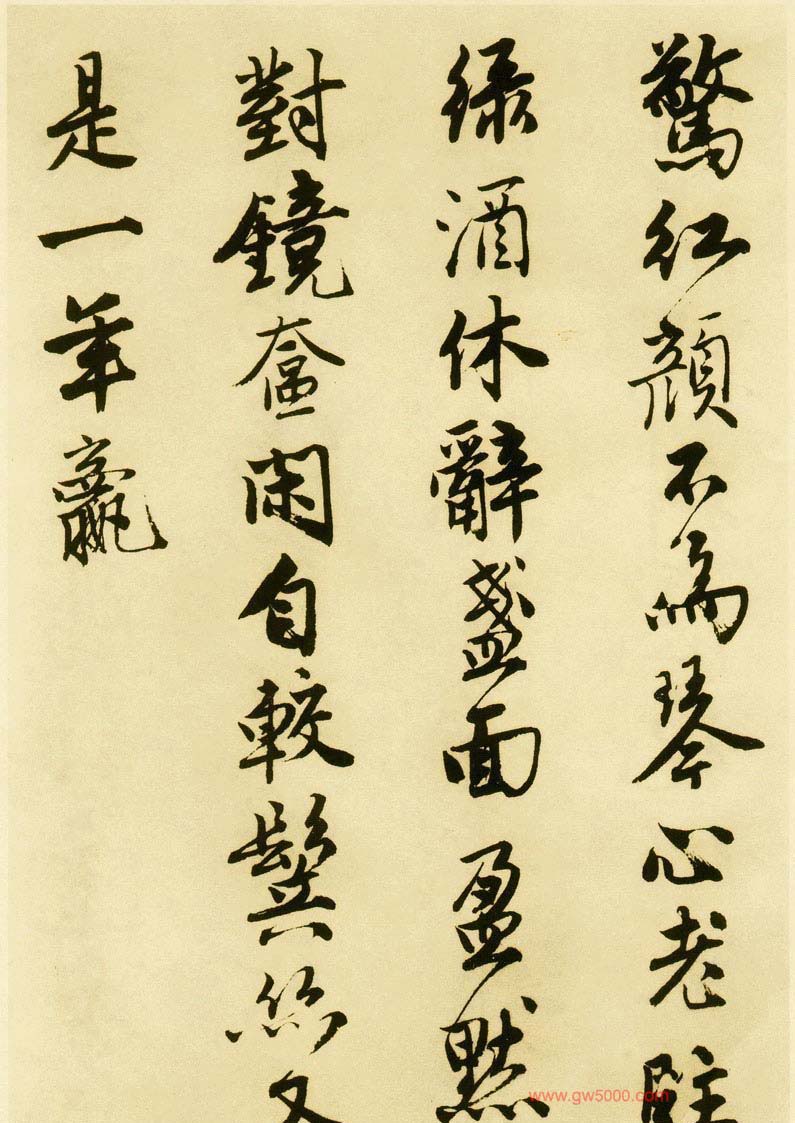 驚紅顏不為琴心老駐
緑酒休辭盞面盈黙
對鏡奩閑自較鬂絲又
是一年贏
www.gw5000.com